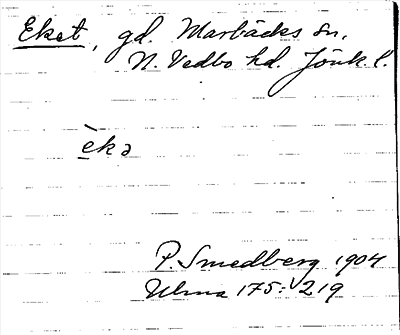 Eket, gd. Marbäcks sn,
N. Vedbo hd. Jönk. l.
èkə
P. Smedberg 1904
Ulma 175: 219